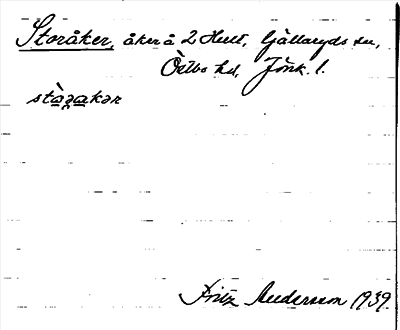 Storåker, åker å 2 Hult, Ljällaryds sn,
Östbo hd, Jönk. l.
stàrakər
Fritz Andersson 1939.